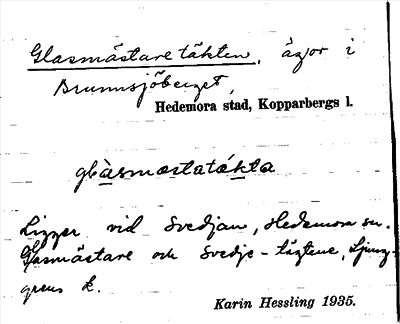 Glasmästaretäkten, ägor i
Brunnsjöberget,
Hedemora stad, Kopparbergs l.
glàsmæstatákta
Ligger vid Svedjan, Hedemora sn.
Glasmästare och Svedje-tägtene, Ljung-
grens k.
Karin Hessling 1935.